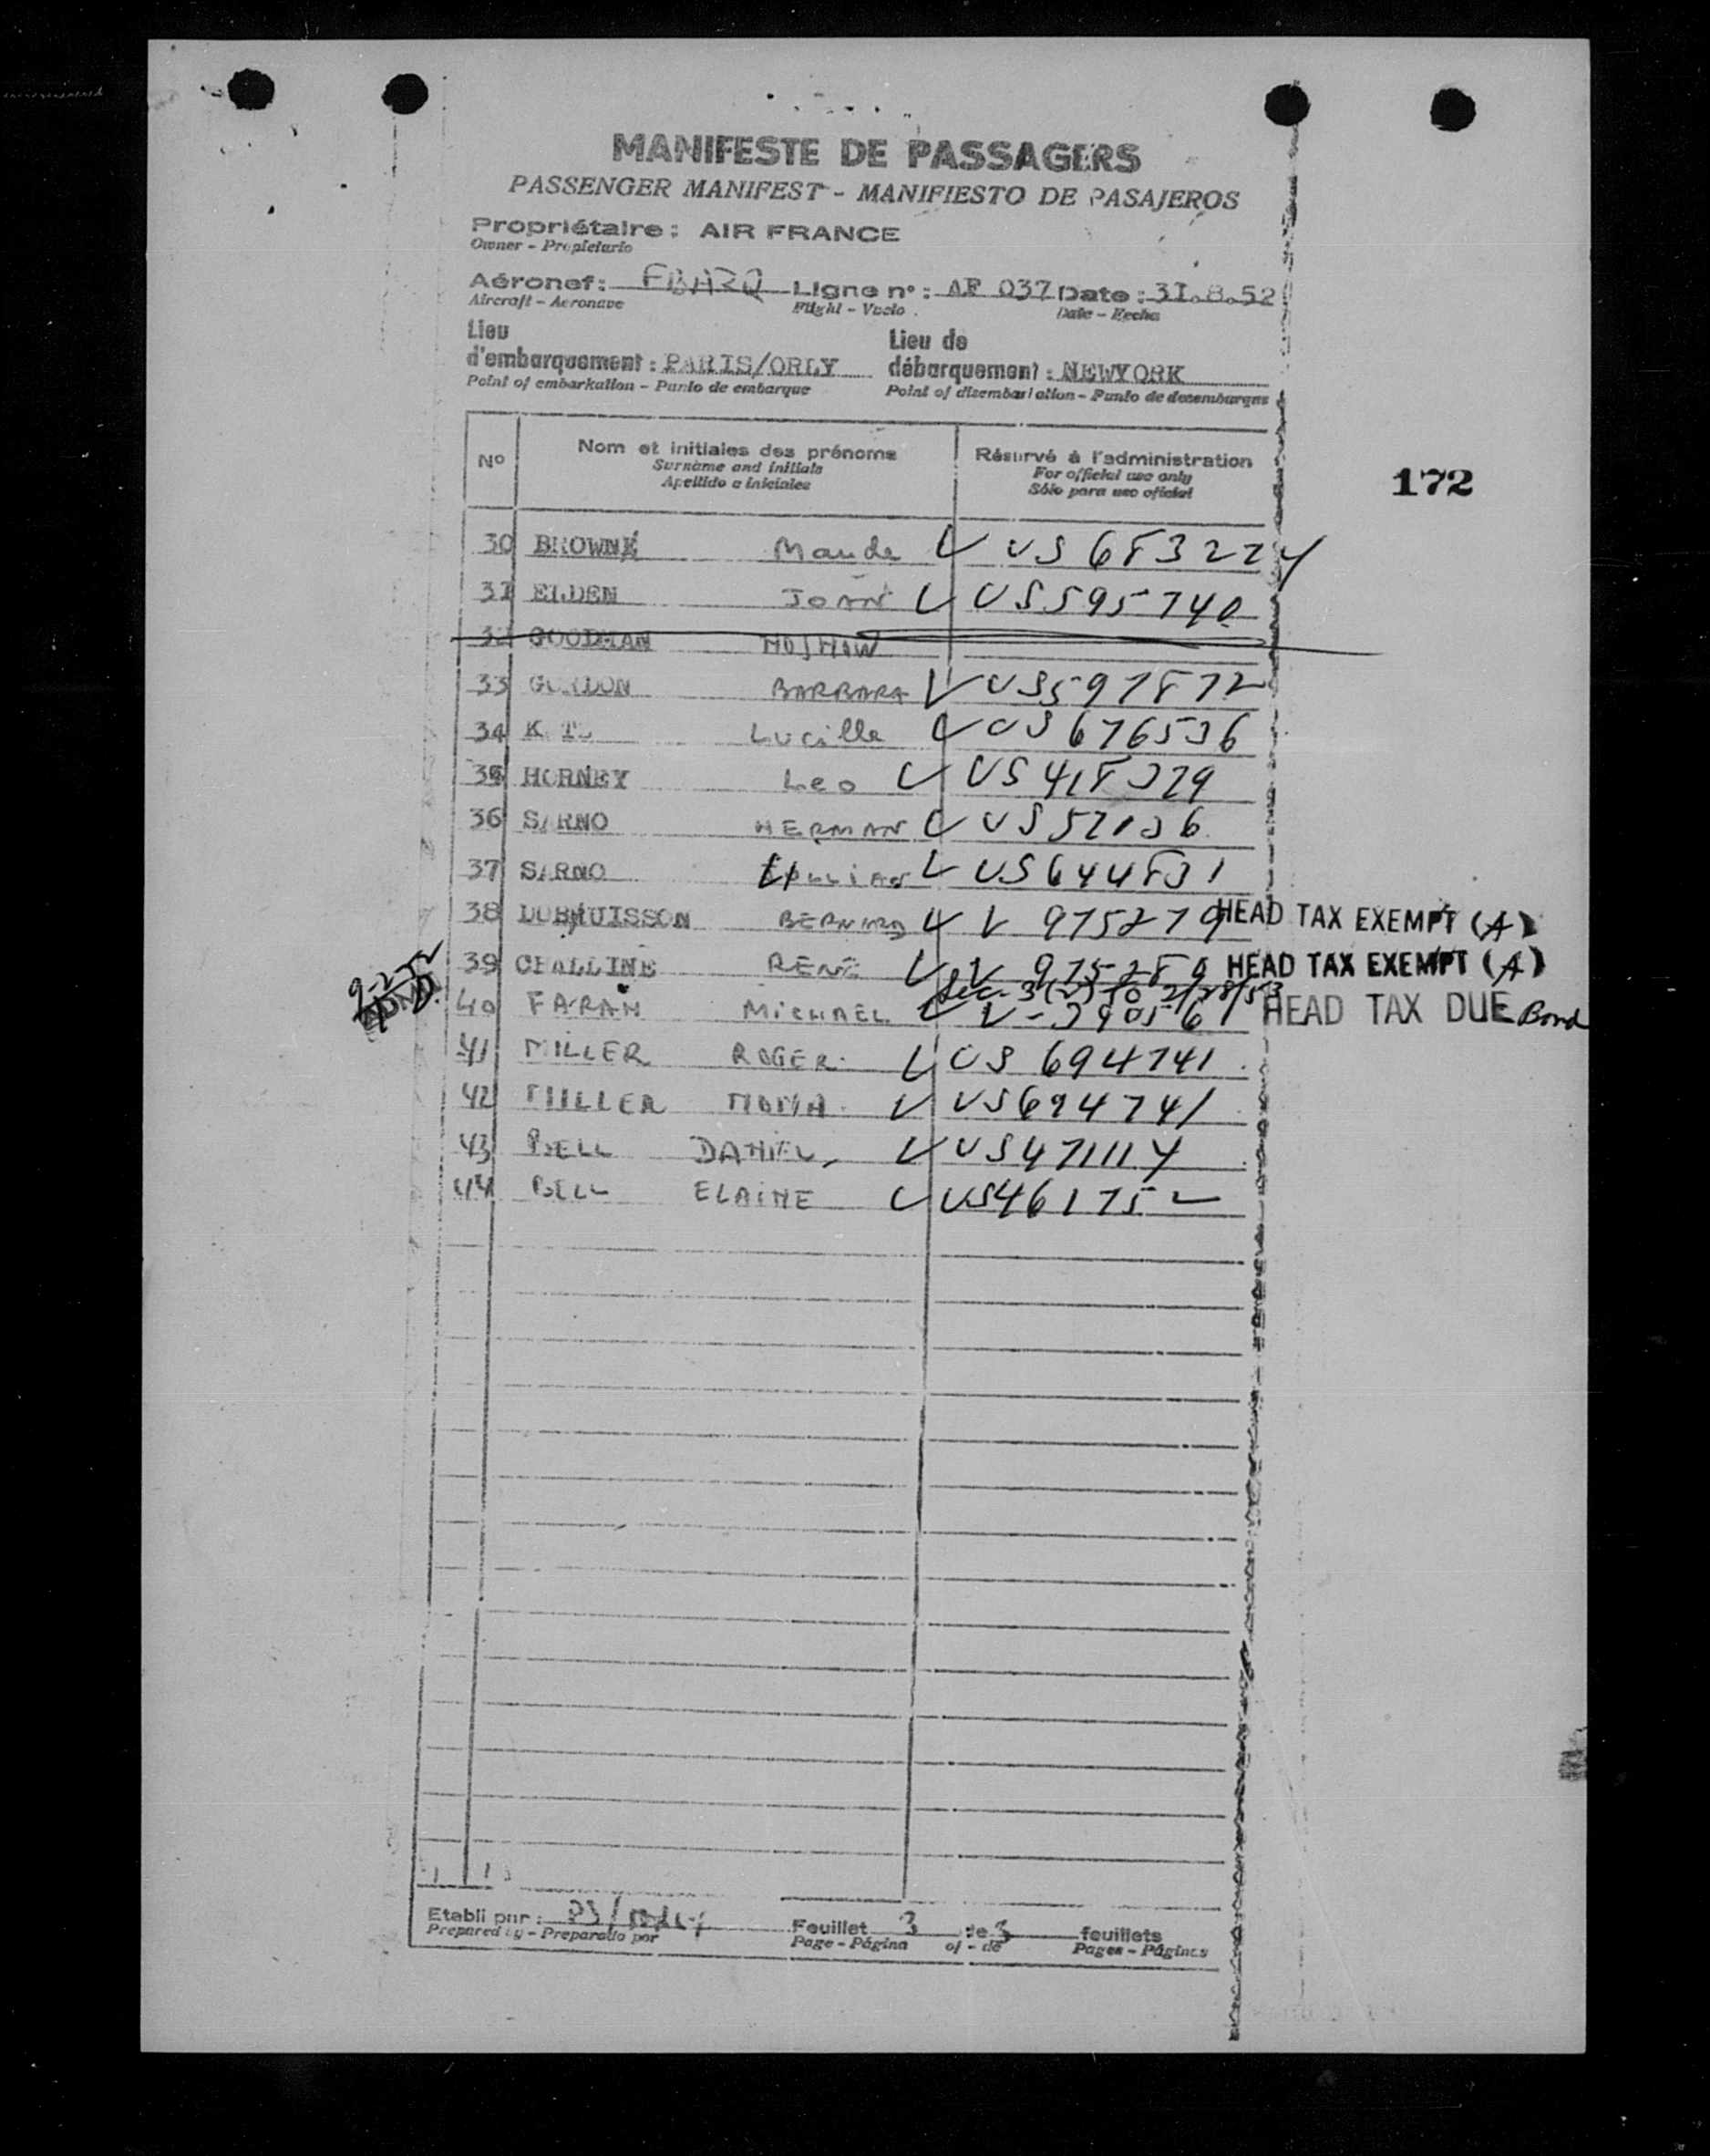 MANIFESTE DE PASSAGERS
PASSENGER MANIFEST - MANIFIESTO DE PASAJEROS
Propriétaire : AIR FRANCE
Owner - Propietario
Aéronef : FBAZQ Ligne n° : AF 037 Date : 31.8.52
Aircraft - Aeronave Flight - Vuelo Date - Fecha
Lieu d'embarquement : PARIS/ORLY Lieu de débarquement : NEWYORK
Point of embarkation - Punto de embarque Point of disembarkation - Punto de desembarque
N° Nom et initiales des prénoms Réservé à l'administration
Surname and initials For official use only
Apellido e iniciales Sólo para uso oficial
172
30 BROWNE Maude V US 683224
31 ELDEN JOAN V US 595740
32 GOODMAN
33 GORDON BARBARA V US 597872
34 Lucille V US 676536
35 HORNEY Leo V US 418329
36 SARNO HERMAN V US 52136
37 SARNO LILLIAN V US 644831
38 DUBHUISSON BERNARD V V 975279 HEAD TAX EXEMPT (A)
39 CHALLINE RENÉ V V 975289 HEAD TAX EXEMPT (A)
9-2-52
Sec. 3(2) to 2/28/53
40 FARAH MICHAEL V V-390561 HEAD TAX DUE Bond
41 MILLER ROGER V US 694741
42 MILLER MONA V US 694741
43 BELL DANIEL V US 471114
44 BELL ELAINE V US 461752
Etabli par :
Prepared by - Preparado por
Feuillet 3 de 3 feuillets
Page - Página of - de Pages - Páginas